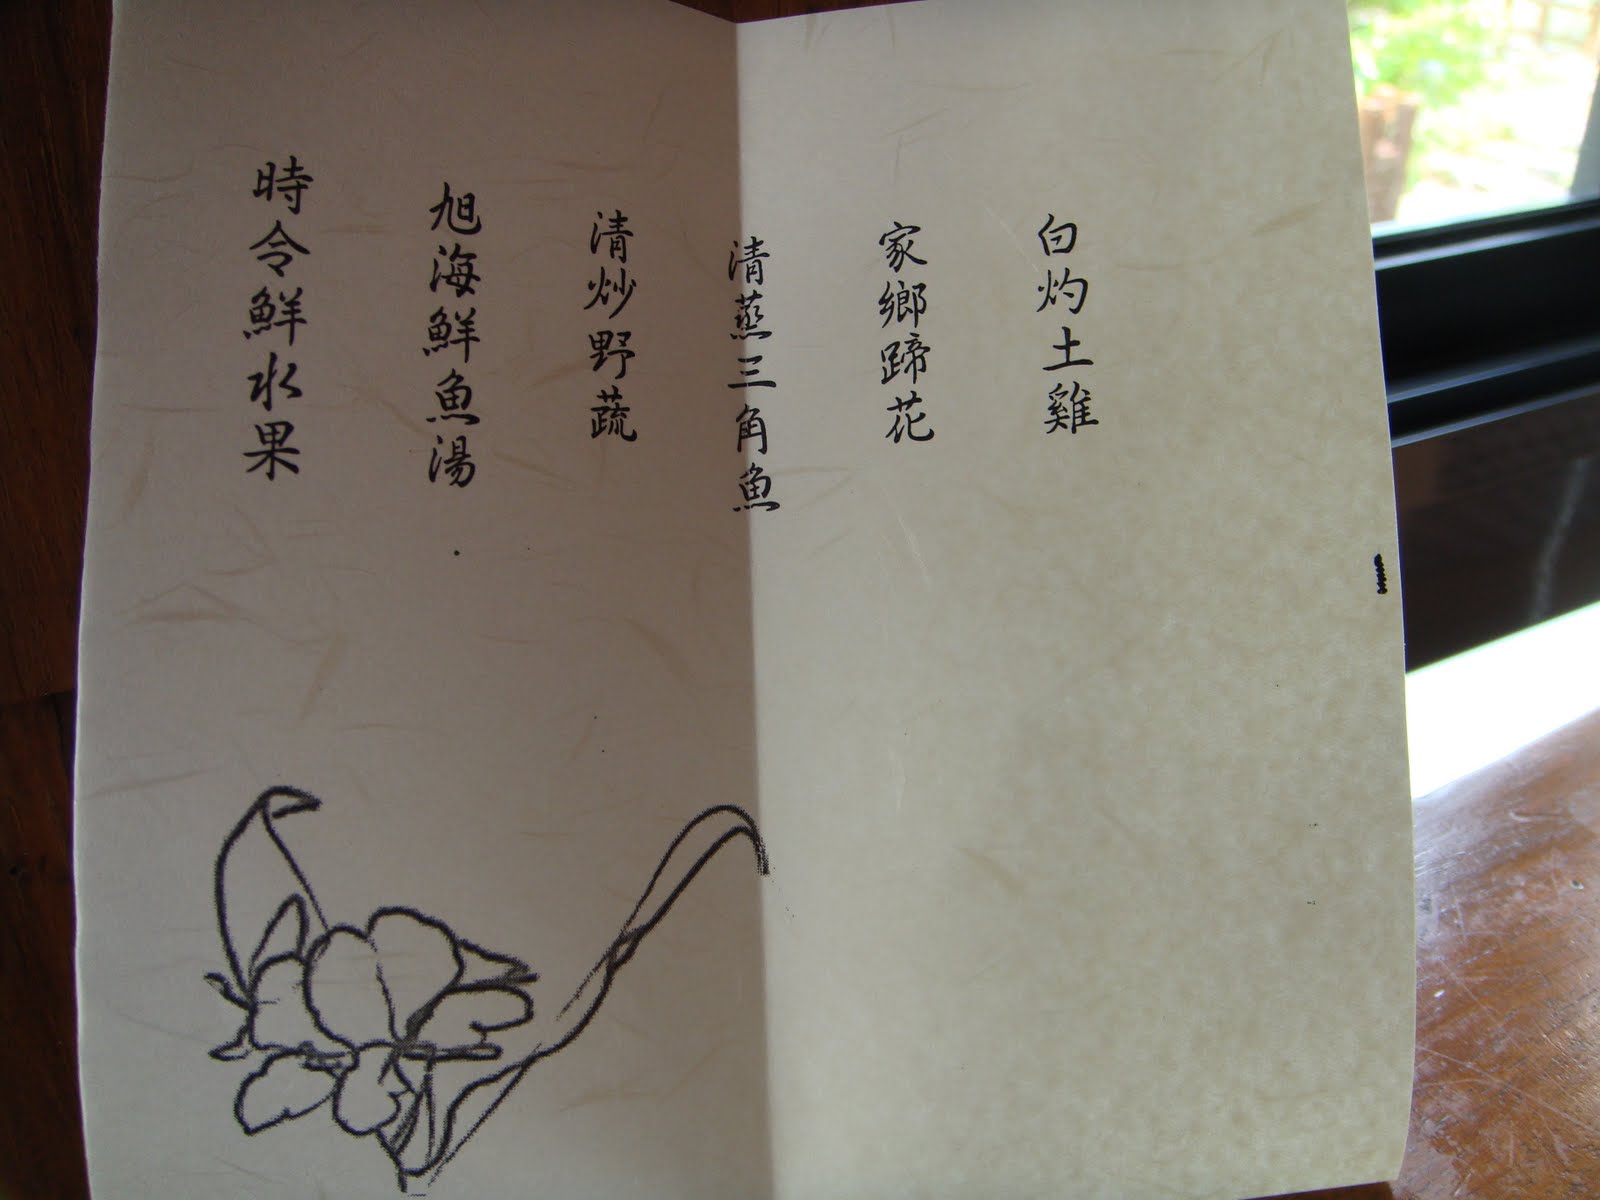 白灼土雞
家鄉蹄花
清蒸三角魚
清炒野蔬
旭海鮮魚湯
時令鮮水果